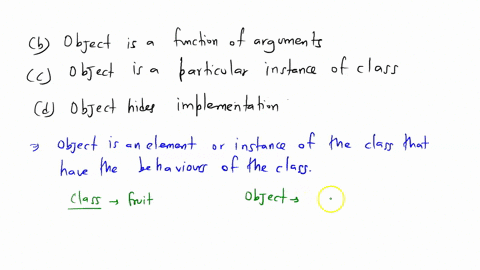 (b) Object is a function of arguments
(c) Object is a particular instance of class
(d) Object hides implementation
⇒ Object is an element or instance of the class that
have the behaviours of the class.
Class → fruit Object →